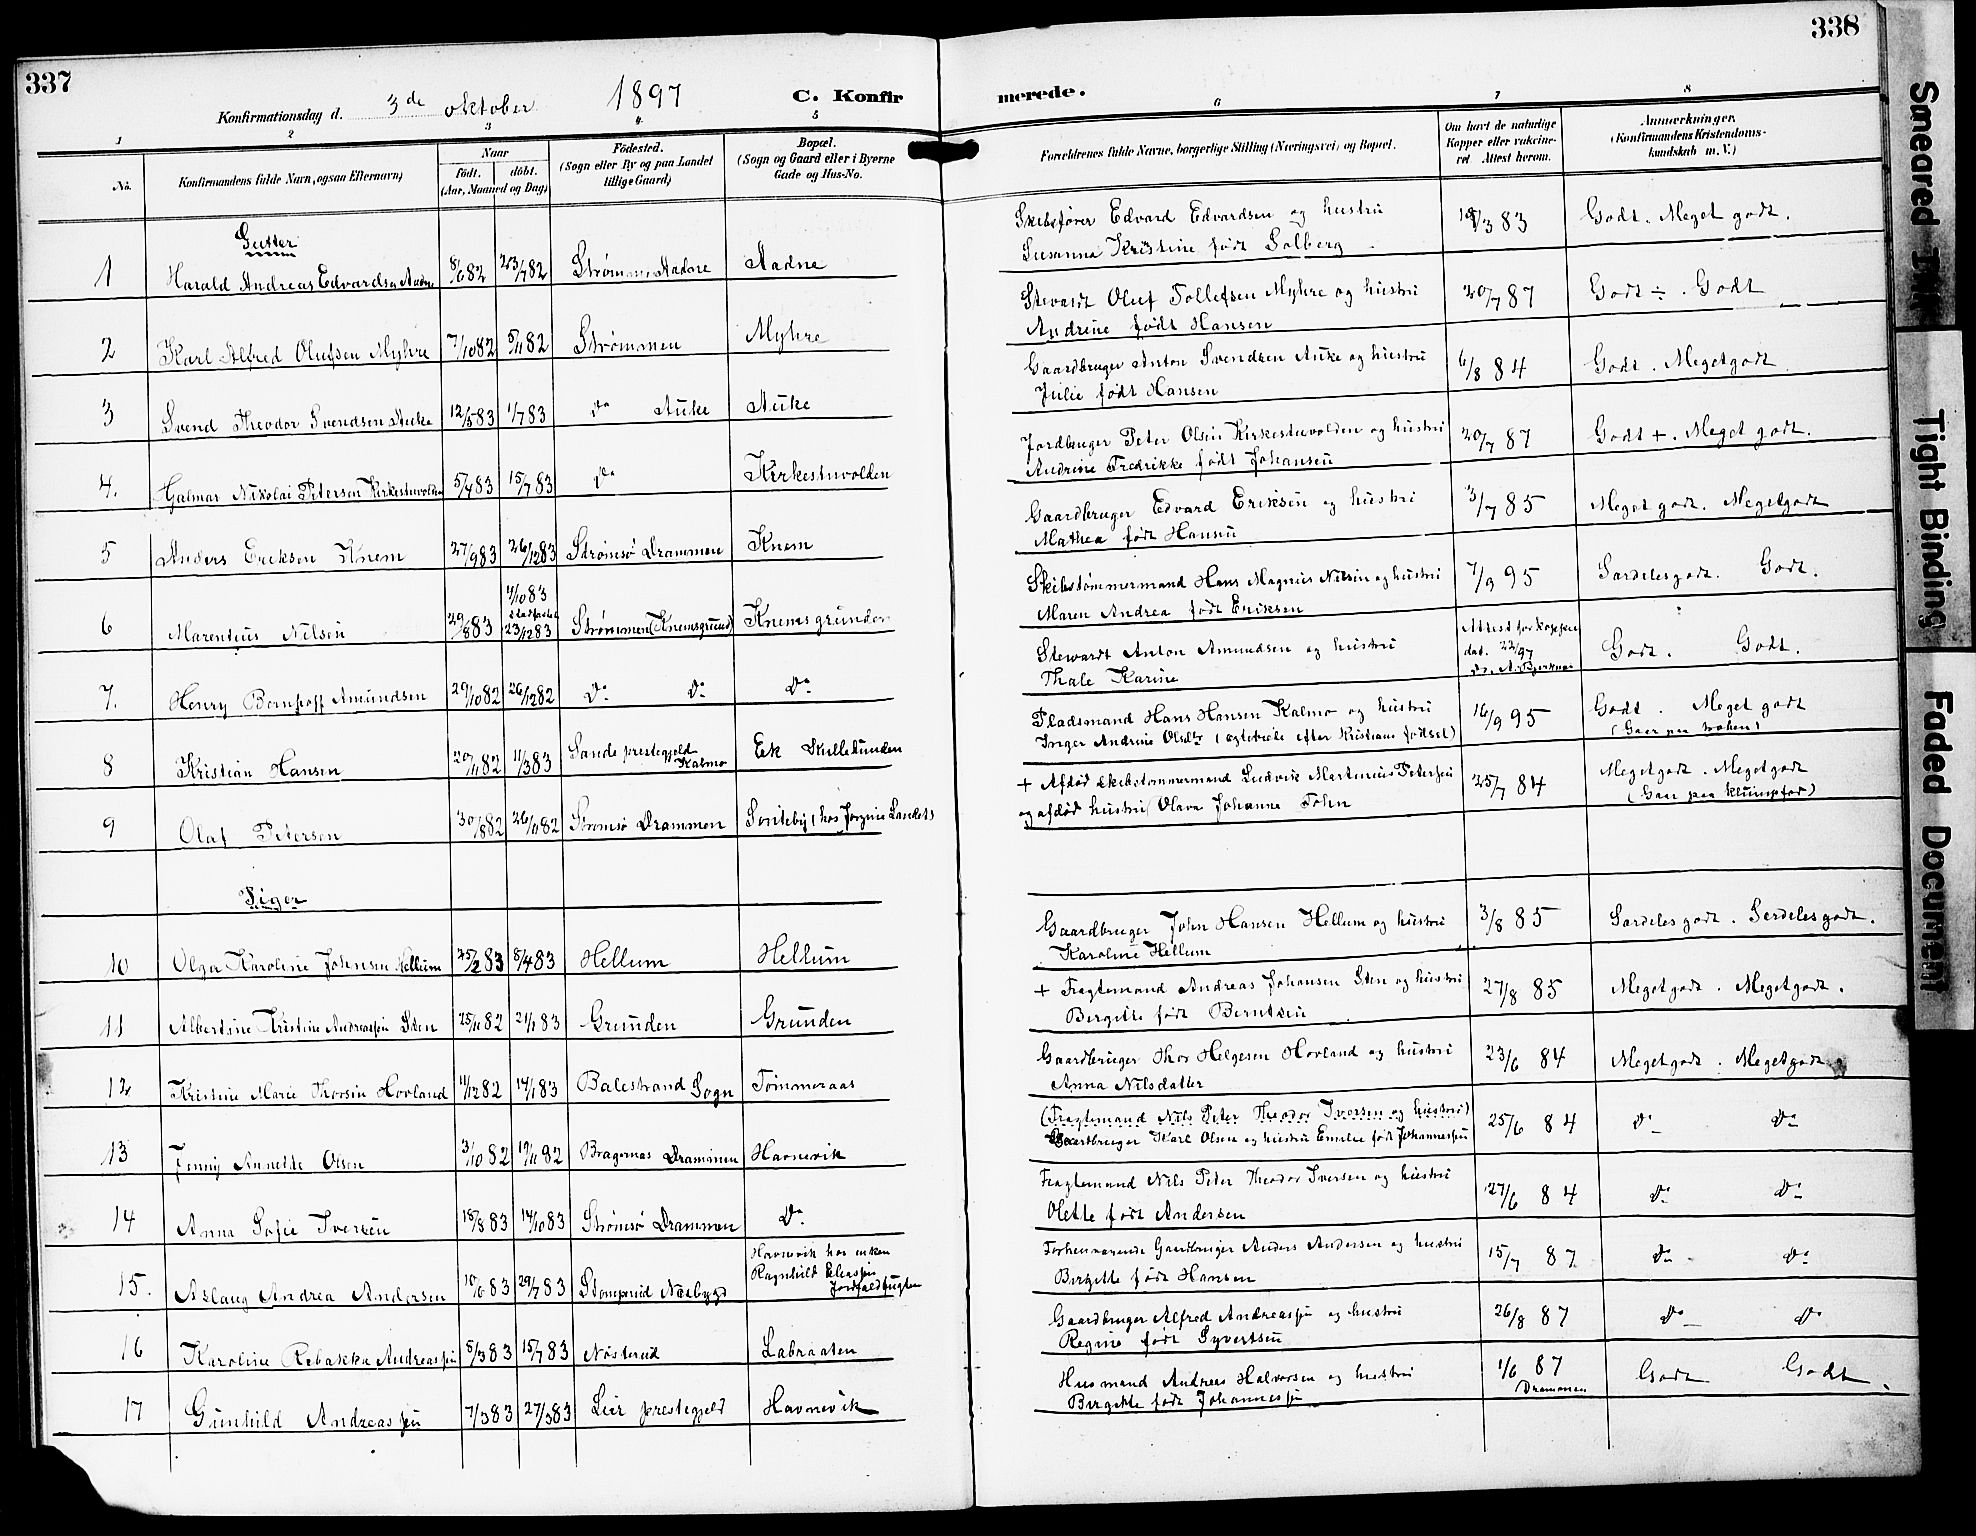 337
338
Konfirmationsdag d. 3de oktober 1897 C. Konfirmerede.
1 2 3 4 5 6 7 8
No.
Konfirmandens fulde Navn, ogsaa Efternavn)
Naar
födt. döbt.
(Aar, Maaned og Dag)
Födested.
(Sogn eller By og paa Landet tillige Gaard)
Bopæl.
(Sogn og Gaard eller i Byerne Gade og Hus-No.
Forældrenes fulde Navne, borgerlige Stilling (Næringsvei) og Bopæl.
Om havt de naturlige Kopper eller vakcineret. Attest herom.
Anmærkninger.
(Konfirmandens Kristendomskundskab m. V.)
Gutter
1 Harald Andreas Edvardsen Aadne 8/6 82 23/7 82 Strømmen Aadne Aadne
Skibsfører Edvard Edvardsen og hustru
Susanna Kristine født Solberg 83 Godt. Meget godt.
2 Karl Alfred Olufsen Myhre 7/10 82 5/11 82 Strømmen Myhre
Stevardt Oluf Tollefsen Myhre og hustru
Andrine født Hansen 20/7 87 Godt ÷. Godt
3 Svend Theodor Svendsen Auke 12/5 83 1/7 83 Do Auke Auke
Gaardbruger Anton Svendsen Auke og hustru
Julie født Hansen 6/8 84 Godt. Meget godt
4. Hjalmar Nikolai Petersen Kirkestuvolden 5/4 83 15/7 83 Do Kirkestuvolden
Jordbruger Peter Olsen Kirkestuvolden og hustru
Andrine Fredrikke født Johansen 20/7 87 Godt +. Meget godt.
5 Anders Eriksen Knem 27/9 83 26/12 83 Strømsø Drammen Knem
Gaardbruger Edvard Eriksen og hustru
Mathea født Hansen 3/7 85 Meget godt. Meget godt
6 Marentius Nilsen 29/8 83 4/10 83 stadfæstet 23/12 83 Strømmen (Knemsgrund) Knemsgrunden
Skibstømmermand Hans Magnus Nilsen og hustru
Maren Andrea født Eriksen 7/9 95 Særdeles godt. Godt.
7. Henry Bernhoff Amundsen 29/10 82 26/12 82 Do Do Do
Stewardt Anton Amundsen og hustru
Thale Karine Attest for kopper dat. 22/9 97 Godt. Godt.
8 Kristian Hansen 20/11 82 11/3 83 Sande prestegjeld Kalmo Ek Skullestunden
Pladsmand Hans Hansen Kalmo og hustru
Inger Andrine Olsdtr (ægteviede efter Kristians fødsel) 16/9 95 Godt. Meget godt
9 Olaf Petersen 30/8 82 26/11 82 Strømsø Drammen Svitebÿ (hos Jørgine Landets
+ Afdød skibstømmermand Ludvik Martinius Petersen
og afdød hustru Olava Johanne Tohn 25/7 84 Meget godt. Meget godt
(Gaar paa klumpfod)
Piger
10 Olga Karoline Johnsen Hellum 25/2 83 8/4 83 Hellum Hellum
Gaardbruger John Hansen Hellum og hustru
Karoline Hellum 3/8 85 Særdeles godt. Særdeles godt.
11 Albertine Kristine Andreassen Sten 25/11 82 21/1 83 Grunden Grunden
+ Fragtemand Andreas Johansen Sten og hustru
Bergitte født Berntsen 27/8 85 Meget godt. Meget godt.
12 Kristine Marie Thorsen Hovland 11/12 82 14/1 83 Balestrand Sogn Tømmeraas
Gaardbruger Thor Helgesen Hovland og hustru
Anna Nilsdatter 23/6 84 Meget godt. Meget godt
13 Jenny Annette Olsen 3/10 82 19/11 82 Bragernæs Drammen Havnevik
(Fragtemand Nils Peter Theodor Iversen og hustru)
Gaardbruger Karl Olsen og hustru Emilie født Johannessen 25/6 84 Do Do
14 Anna Sofie Iversen 18/8 83 14/10 83 Strømsø Drammen Do
Fragtemand Nils Peter Theodor Iversen og hustru
Olette født Andersen 27/6 84 Do Do
15. Aslaug Andrea Andersen 10/6 83 29/7 83 Stomperud Næsbygd Havnevik hos enken Ragnhild Eliassen Jordfaldbugten
Forhenværende Gaardbruger Anders Andersen og hustru
Bergitte født Hansen 15/7 87 Do Do
16 Karoline Rebakka Andreassen 5/3 83 15/7 83 Nøsterud Labraaten
Gaardbruger Alfred Andreassen og hustru
Regine født Syvertsen 26/8 87 Do Do
17 Gunhild Andreassen 7/3 83 27/3 83 Lier prestegjeld Havnevik
Husmand Andreas Halvorsen og hustru
Bergitte født Johannessen 1/6 87 Drammen Godt Godt.
Smeared Ink
Tight Binding
Faded Document